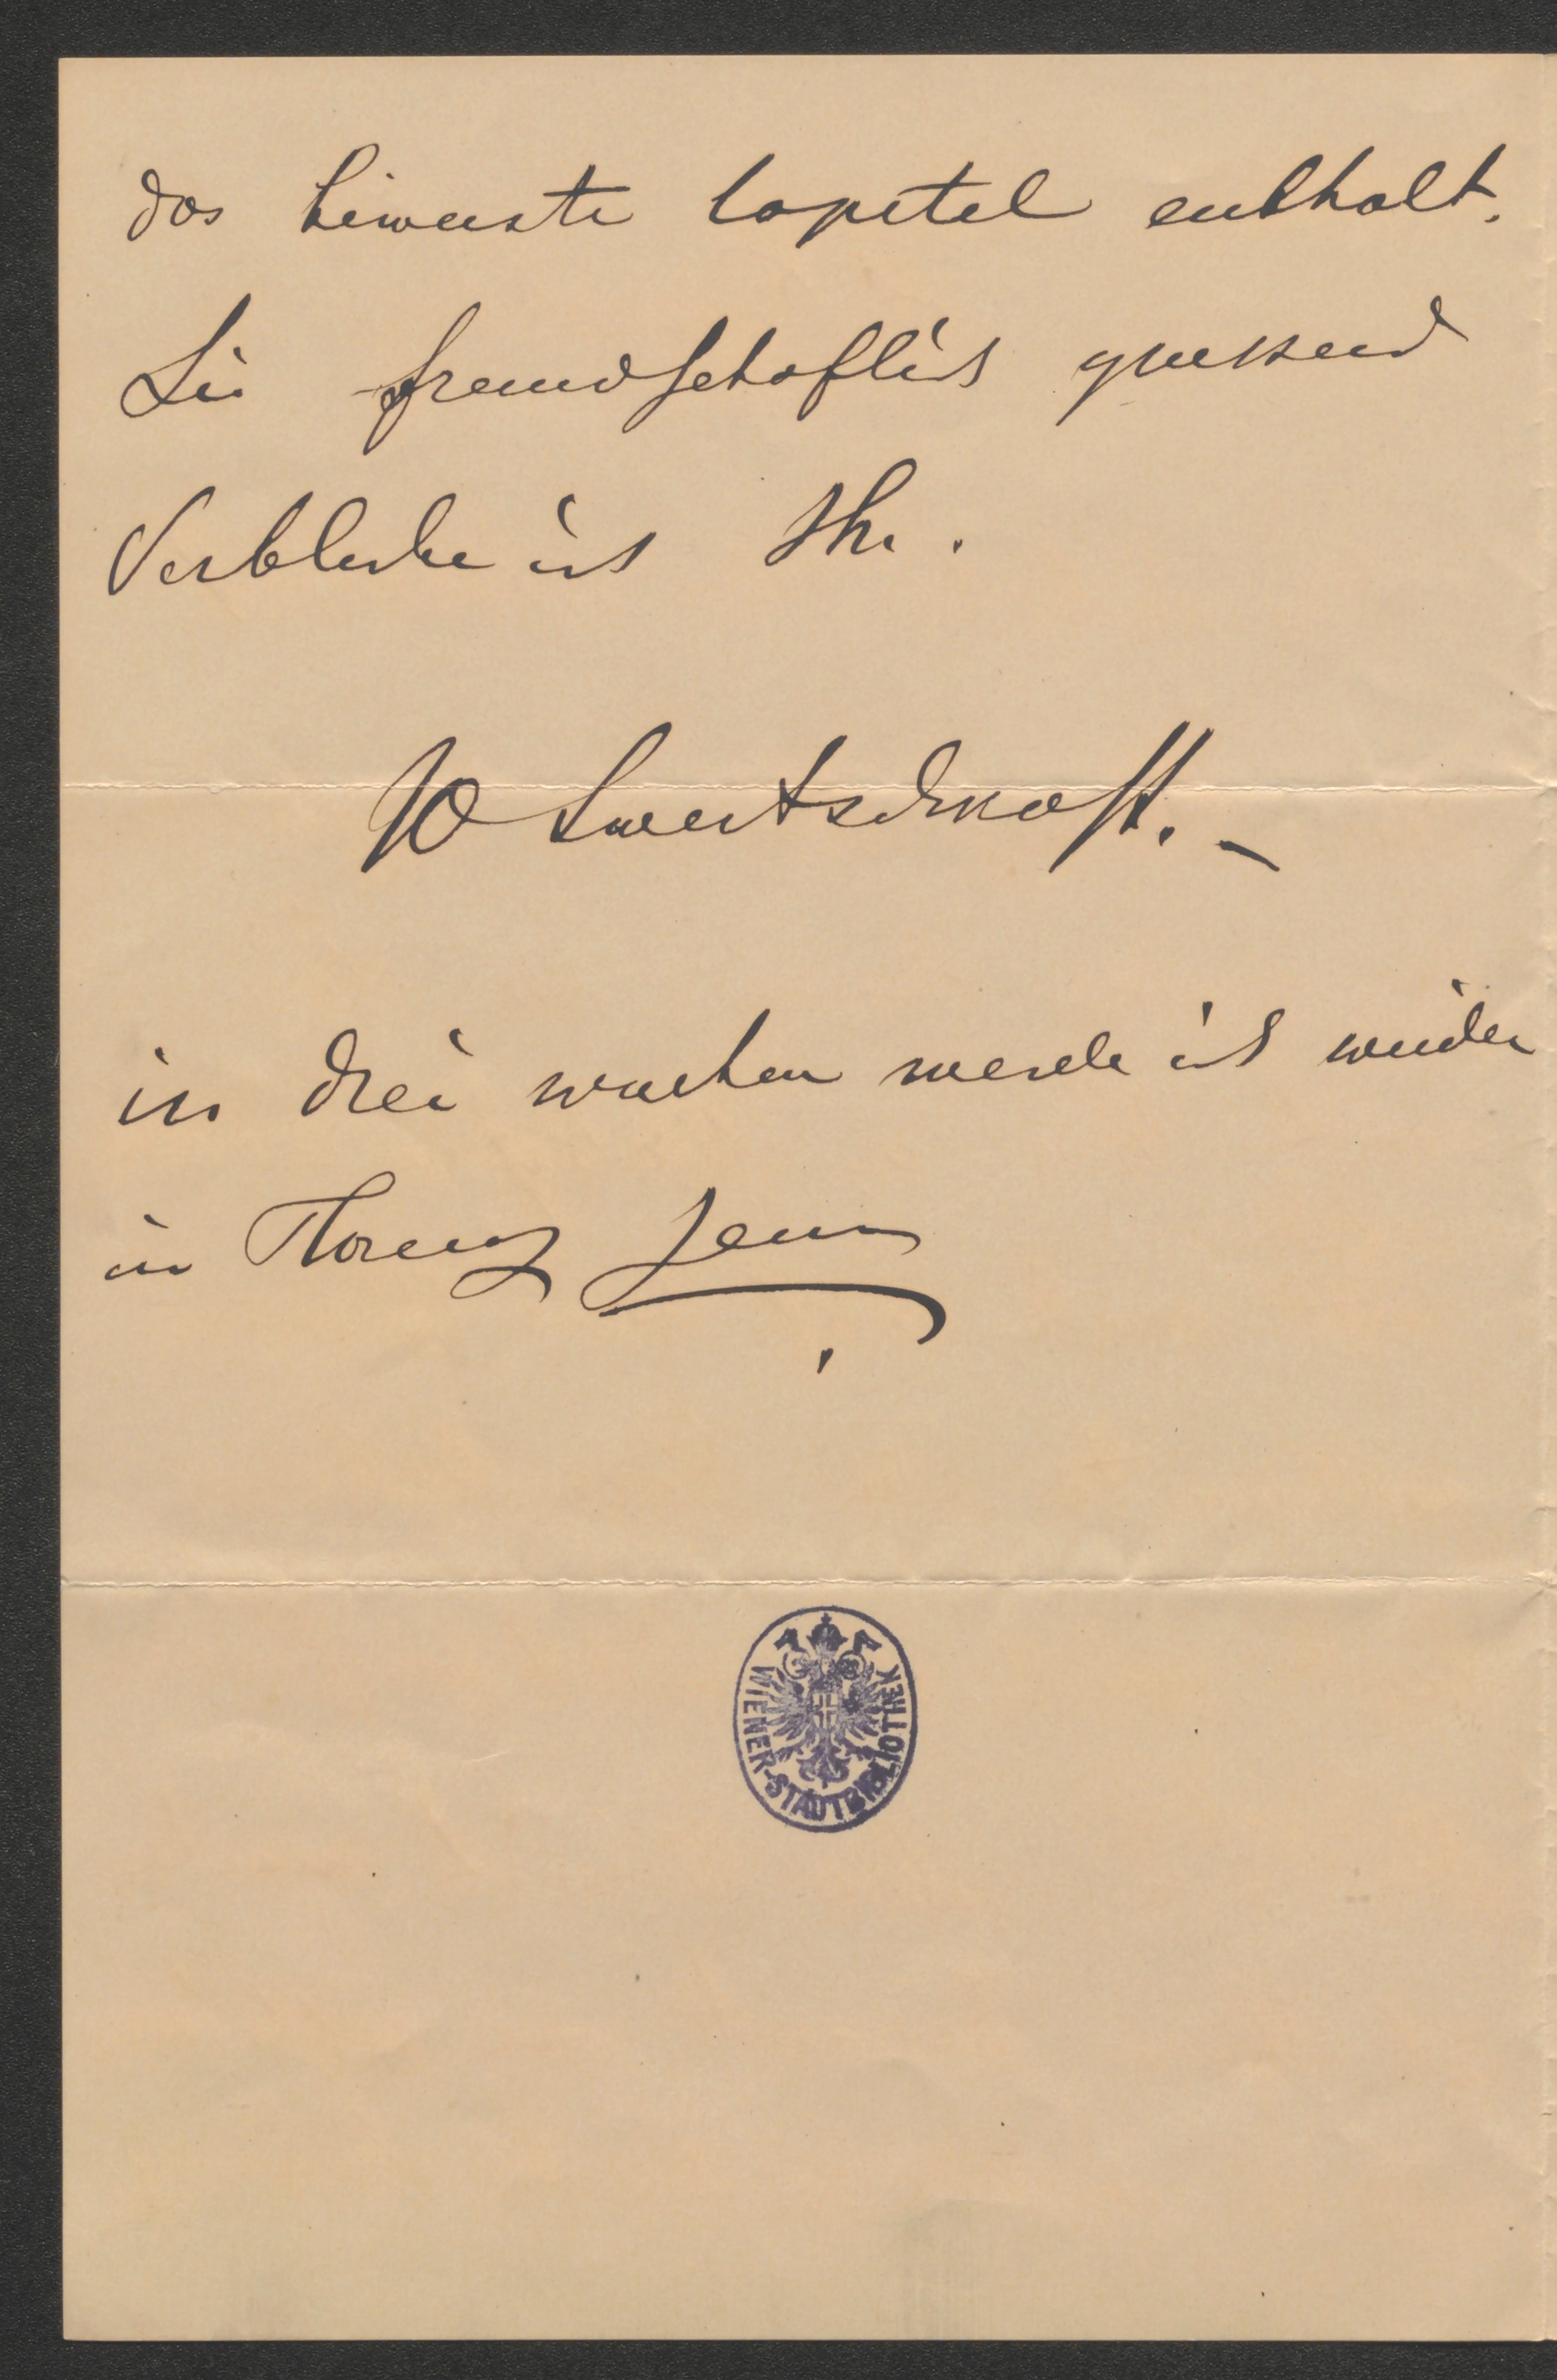 das bewuste Capitel enthalt.
Sie freundschaftlich grussend
Verbleibe ich Ihr.
W Swertschkoff.
in drei wochen werde ich wieder
in Florenz sein
WIENER-STADTBIBLIOTHEK